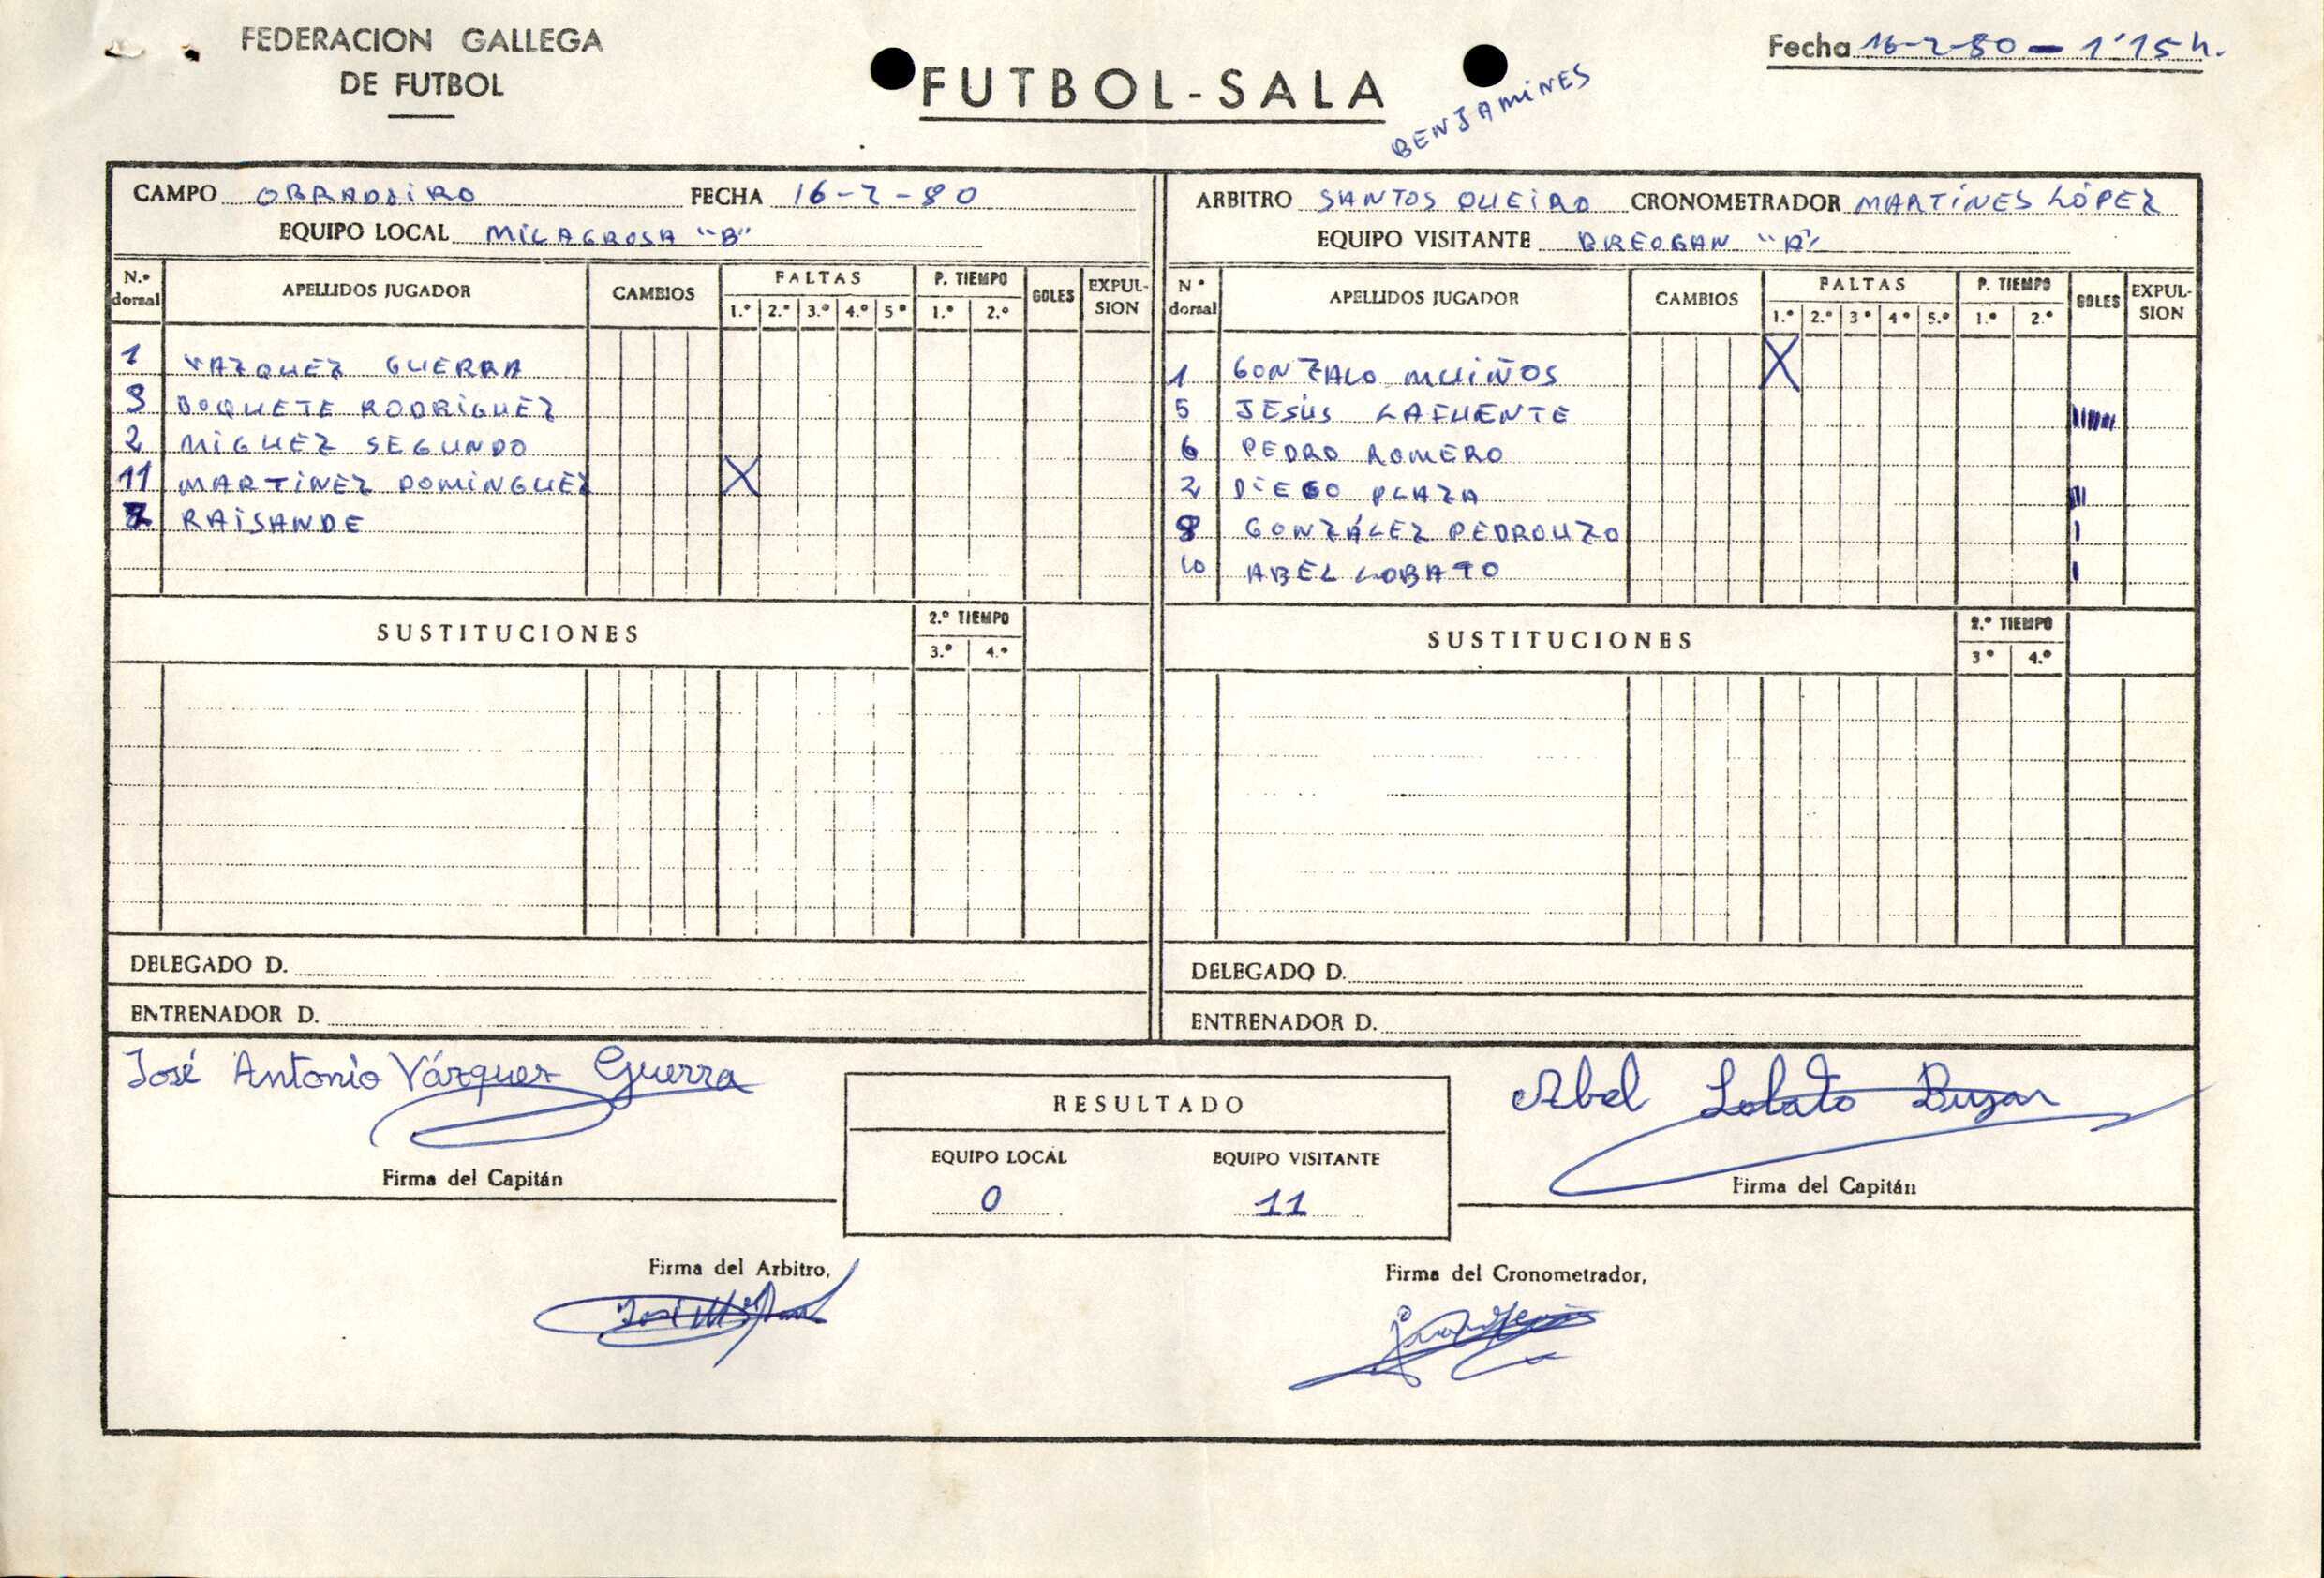 FEDERACION GALLEGA
DE FUTBOL
FUTBOL-SALA
BENJAMINES
Fecha 16-2-80 - 1'15 h.
CAMPO OBRADOIRO FECHA 16-2-80
EQUIPO LOCAL MILAGROSA "B"
N.º dorsal APELLIDOS JUGADOR CAMBIOS FALTAS 1.º 2.º 3.º 4.º 5º P. TIEMPO 1.º 2.º GOLES EXPULSION
1 VAZQUEZ GUERRA
9 BOQUETE RODRIGUEZ
2 MIGUEZ SEGUNDO
11 MARTINEZ DOMINGUEZ X
RAISANDE
SUSTITUCIONES 2.º TIEMPO
3.º 4.º
DELEGADO D.
ENTRENADOR D.
ARBITRO SANTOS QUEIRO CRONOMETRADOR MARTÍNES LÓPEZ
EQUIPO VISITANTE BREOGAN
N º dorsal APELLIDOS JUGADOR CAMBIOS FALTAS 1.º 2.º 3º 4º 5.º P. TIEMPO 1.º 2.º GOLES EXPULSION
1 GONZALO MUIÑOS X
5 JESÚS LAFUENTE
6 PEDRO ROMERO
2 DIEGO PLAZA
8 GONZÁLEZ PEDROUZO I
10 ABEL LOBATO I
SUSTITUCIONES 2.º TIEMPO
3º 4.º
DELEGADO D.
ENTRENADOR D.
José Antonio Vázquez Guerra
Firma del Capitán
RESULTADO
EQUIPO LOCAL EQUIPO VISITANTE
0 11
Abel Lobato
Firma del Capitán
Firma del Arbitro,
Firma del Cronometrador,